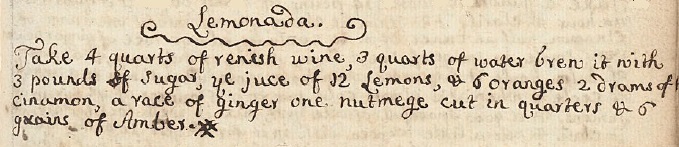 Lemonada.
Take 4 quarts of renish wine, 3 quarts of water brew it with
3 pounds of sugar, ye juce of 12 Lemons, & 6 oranges 2 drams of
cinamon, a race of ginger one nutmege cut in quarters & 6
grains of Amber.